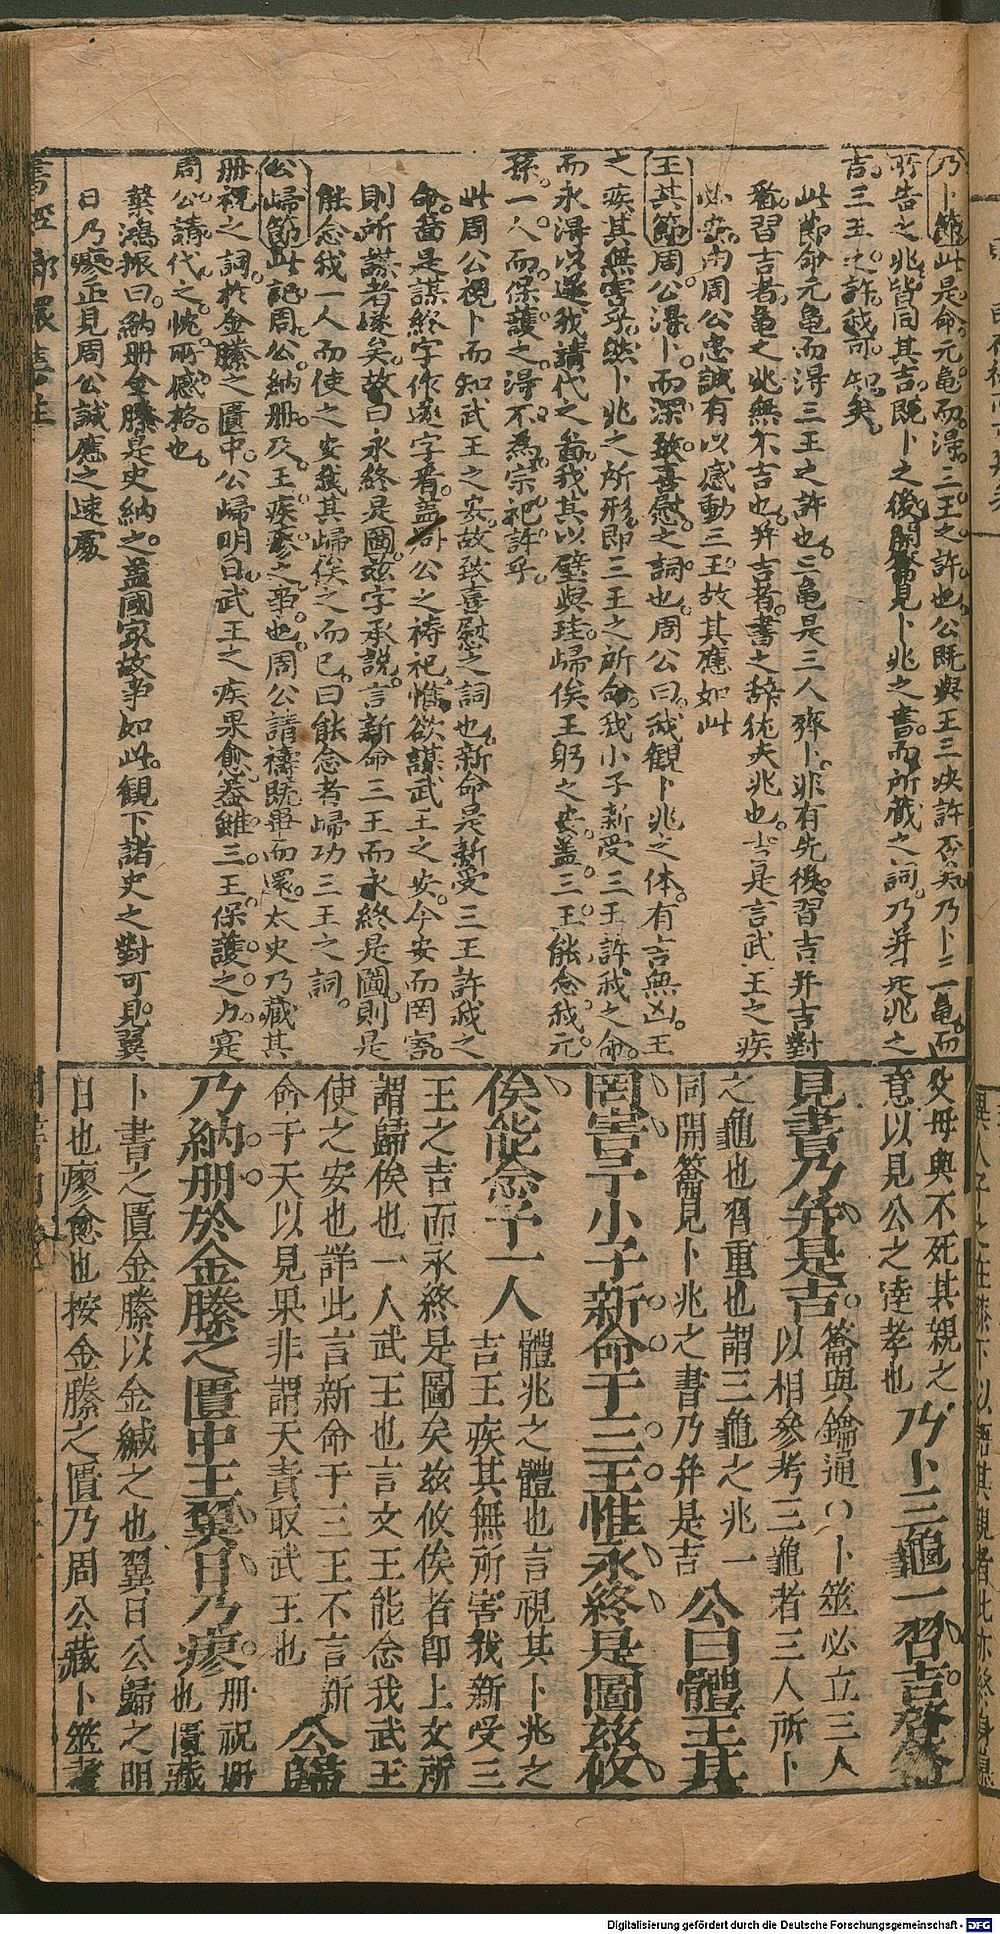 乃卜節此是命元亀而淂三王之許也公既與王三决許否矣乃卜三亀而
所告之兆皆同其吉既卜之後開籥見卜兆之書而所藏之詞乃并是兆之
吉三王之許我可知矣
此節命元亀而淂三王之許也三亀是三人齊卜非有先後習吉并吉對
看習吉者亀之兆無不吉也并吉者書之辞猶夫兆也吉是言武王之疾
必安南周公忠誠有以感動三王故其應如此
王其節周公淂卜而深致喜慰之詞也周公曰我觀卜兆之体有吉無凶王
之疾其無害乎然卜兆之所形即三王之所命我小子新受三王許我之命
而永淂以遂我請代之啚我其以璧與珪歸俟王躬之安盖三王能念我元
孫一人而保護之淂不為宗祀許乎
此周公視卜而知武王之安故致喜慰之詞也新命是新受三王許我之
命啚是謀終字作遂字看盖周公之祷祀惟欲謀武王之安今安而罔害
則所謀者遂矣故曰永終是圖兹字承說言新命三王而永終是圖則是
能念我一人而使之安我其歸俟之而已曰能念者歸功三王之詞
公歸節此記周公納册及王疾瘳之事也周公請禱既畢而還太史乃藏其
册祝之詞於金縢之匱中公歸明日武王之疾果愈盖雖三王保護之力寔
周公請代之忱所感格也
葉鴻振曰納册金縢是史納之盖國家故事如此觀下諸史之對可見翼
日乃瘳正見周公誠應之速處
父母與不死其親之
意以見公之達孝也
乃卜三龜一習吉啓籥
見書乃并是吉
籥與鑰通〇卜筮必立三人
以相參考三龜者三人所卜
之龜也習重也謂三龜之兆一
同開籥見卜兆之書乃并是吉
公曰體王其
罔害予小子新命于三王惟永終是圖兹攸
俟能念予一人
體兆之體也言視其卜兆之
吉王疾其無所害我新受三
王之吉而永終是圖矣兹攸俟者即上文所
謂歸俟也一人武王也言文王能念我武王
使之安也詳此言新命于三王不言新
命于天以見果非謂天責取武王也
公歸
乃納册於金縢之匱中王翼日乃瘳
册祝册
也匱藏
卜書之匱金縢以金緘之也翼日公歸之明
日也瘳愈也按金縢之匱乃周公藏卜筮書
Digitalisierung gefördert durch die Deutsche Forschungsgemeinschaft - DFG